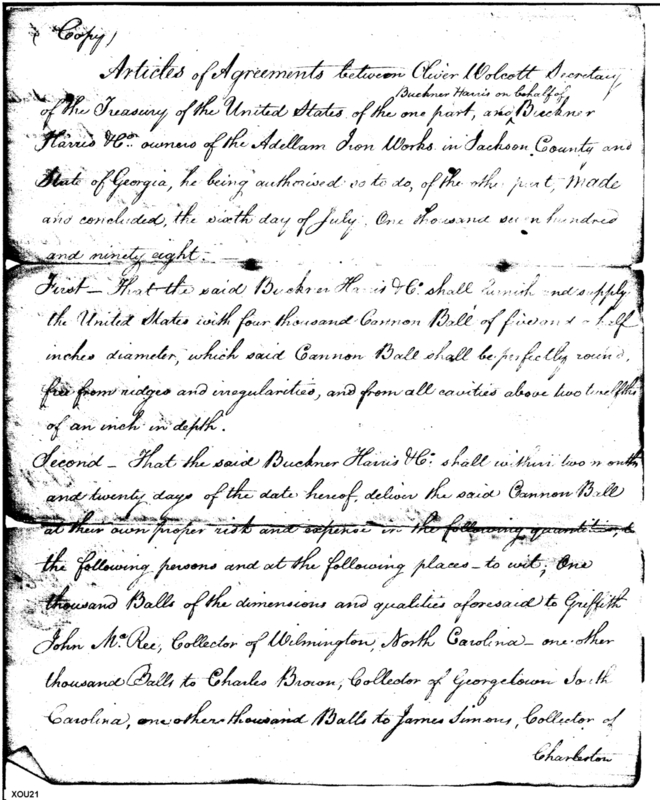 (Copy)
Articles of Agreements between Oliver Wolcott Secretary
of the Treasury of the United States, of the one part, and Buckner Harris on behalf of Buckner
Harris & Co. owners of the Adellam Iron Works in Jackson County and
State of Georgia, he being authorised so to do, of the other part, Made
and concluded, the sixth day of July One thousand seven hundred
and ninety eight.
First – That the said Buckner Harris & Co. shall furnish and supply
the United States with four thousand Cannon Ball of five and a half
inches diameter, which said Cannon Ball shall be perfectly round,
free from ridges and irregularities, and from all cavities above two twelfths
of an inch in depth.
Second – That the said Buckner Harris & Co. shall within two months
and twenty days of the date hereof, deliver the said Cannon Ball
at their own proper risk and expense in the following quantities, to
the following persons and at the following places – to wit; One
thousand Balls of the dimensions and qualities aforesaid to Griffith
John McRee, Collector of Wilmington, North Carolina – one other
thousand Balls to Charles Brown, Collector of Georgetown South
Carolina, one other thousand Balls to James Simons, Collector of
Charleston
XOU21